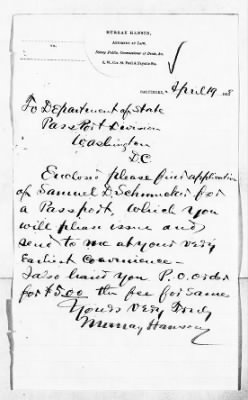 MURRAY HANSON,
ATTORNEY AT LAW,
Notary Public, Commissioner of Deeds, &c.
S. W. Cor. St. Paul & Fayette Sts.
BALTIMORE, April 19
To Department of State
Pass Port Division
Washington
D.C
Enclosed please find application
of Samuel D. Schmucker for
a Passport, which you
will please issue and
send to me at your very
Earliest Convenience—
I also hand you P.O. Order
for $5.00 the fee for same
Yours very truly
Murray Hanson